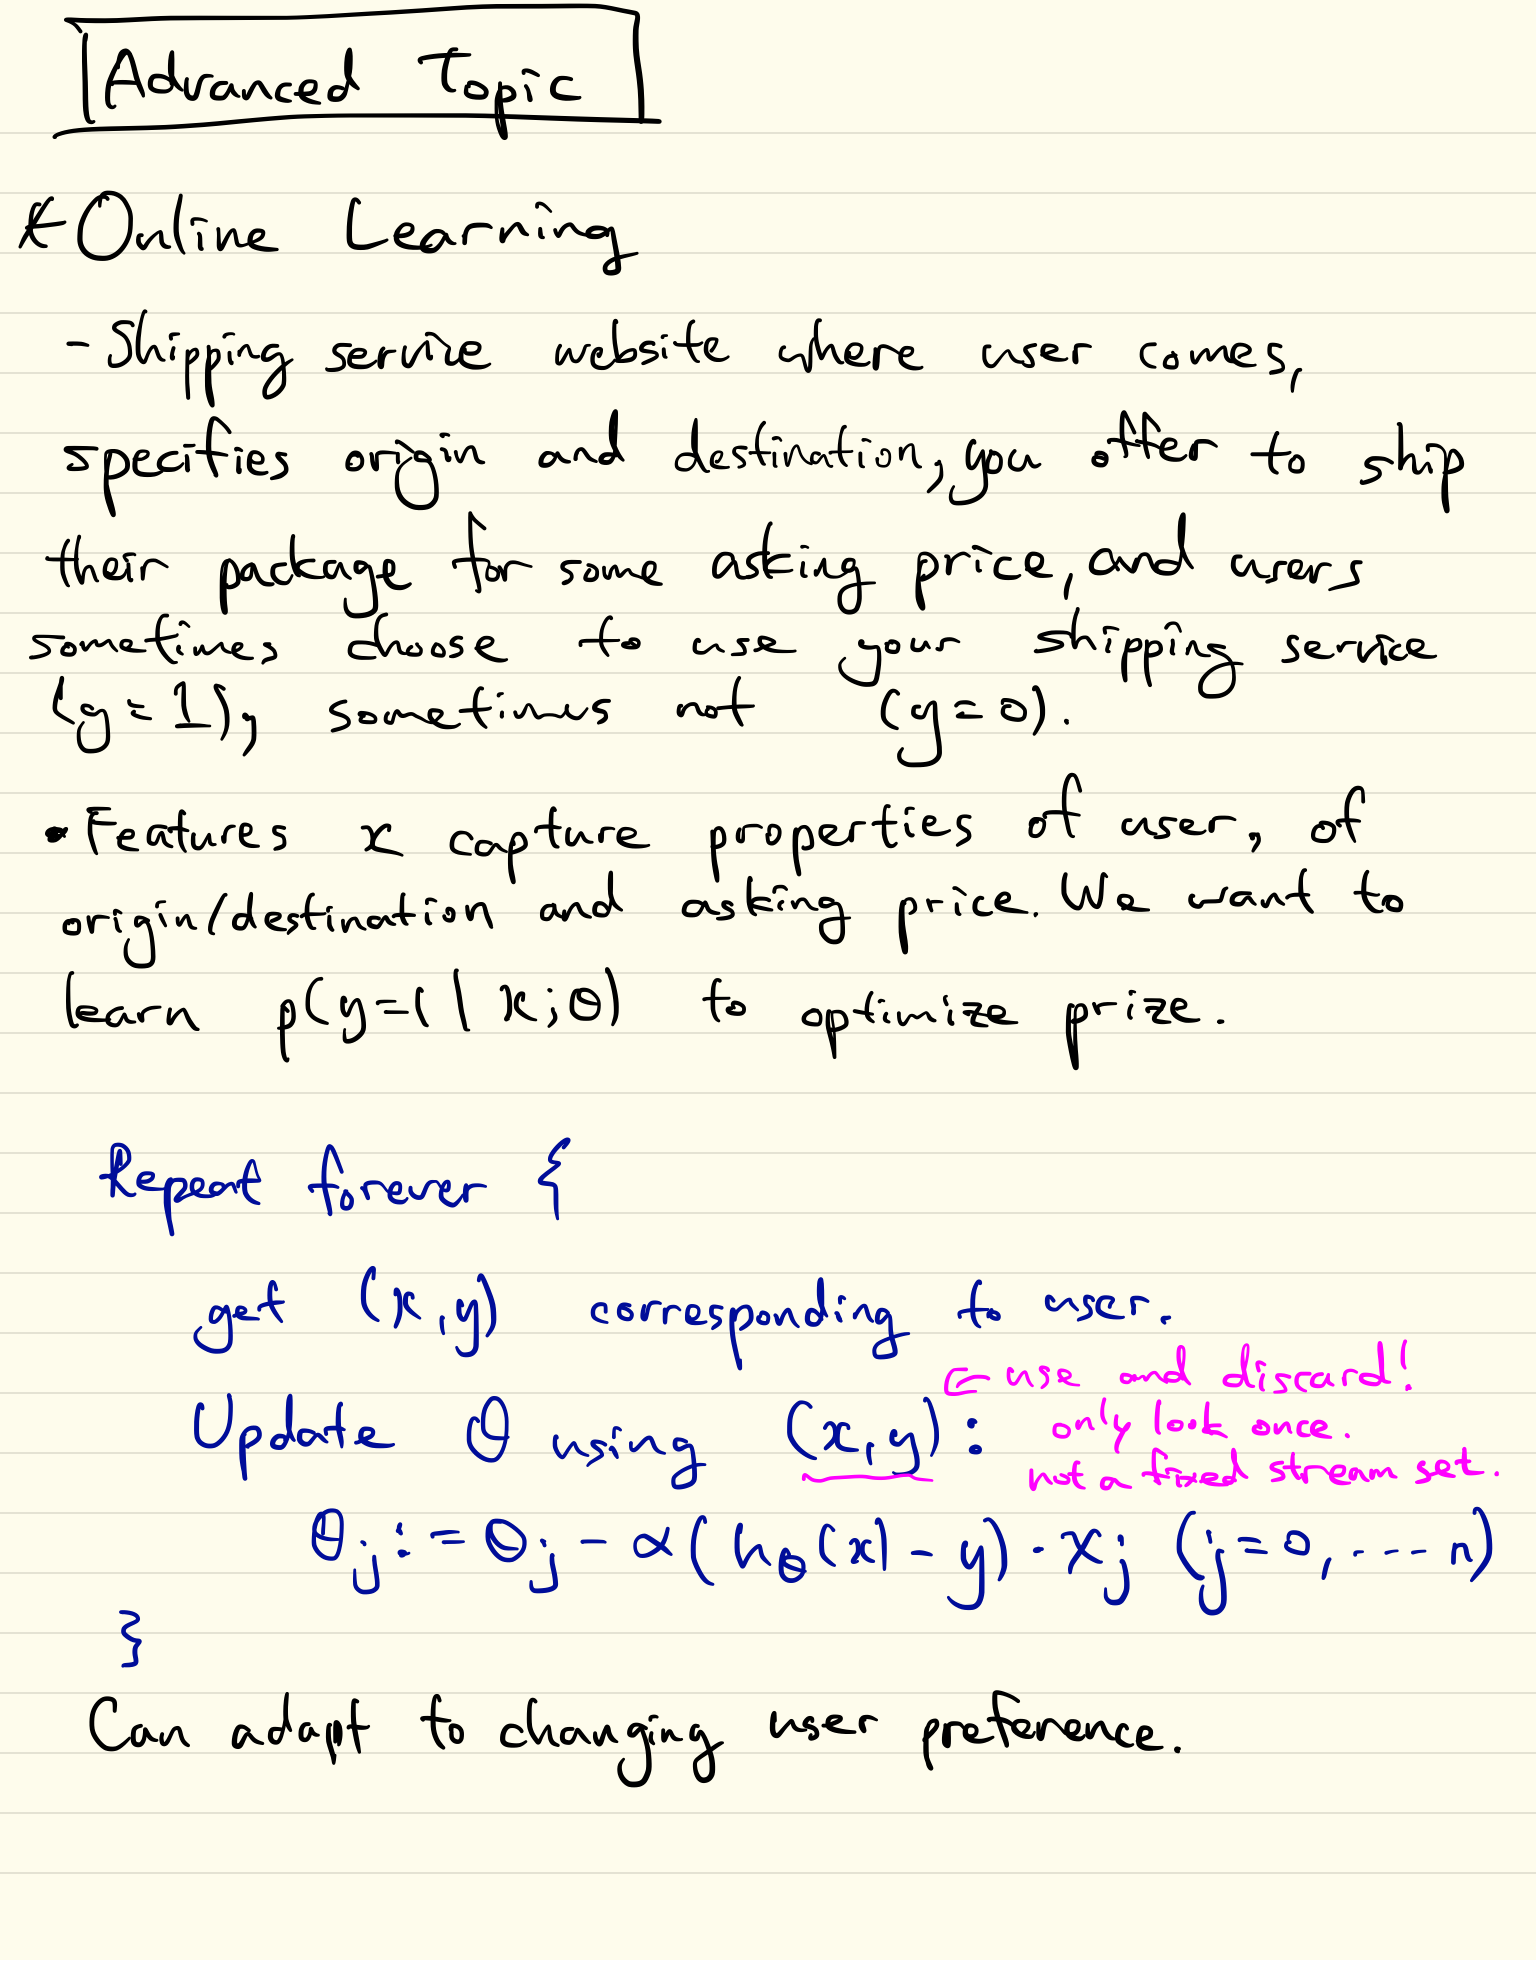 Advanced Topic
* Online Learning
- Shipping service website where user comes,
specifies origin and destination, you offer to ship
their package for some asking price, and users
sometimes choose to use your shipping service
(y=1), sometimes not (y=0).
• Features x capture properties of user, of
origin/destination and asking price. We want to
learn p(y=1 | x;θ) to optimize prize.
Repeat forever {
get (x,y) corresponding to user.
← use and discard!
Update θ using (x,y):
only look once.
not a fixed stream set.
θj := θj - α(hθ(x) - y) · xj (j=0, .... n)
}
Can adapt to changing user preference.